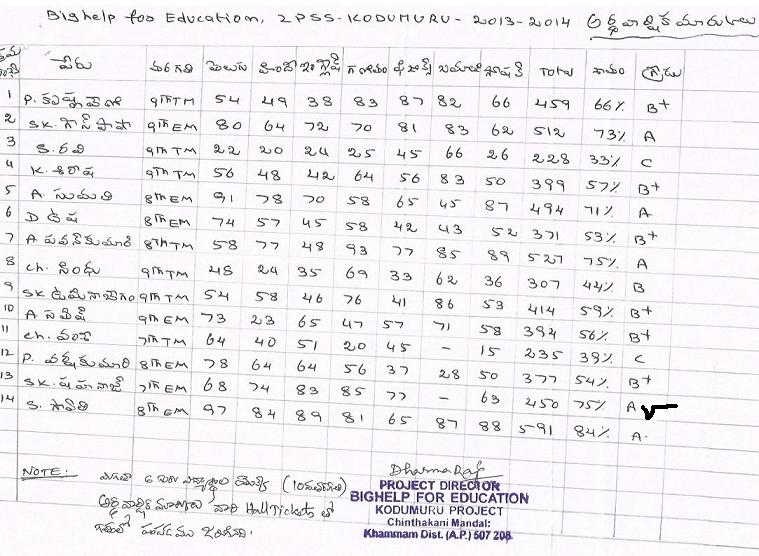 Bighelp for Education, ZPSS-KODUMURU- 2013-2014 అర్థవార్షిక మార్కులు
పేరు తరగతి తెలుగు హిందీ ఇంగ్లీష్ గణితం Total శాతం గ్రేడు
1 P. 9th TM 54 49 38 83 87 82 66 459 66% B+
2 SK. 9th EM 80 64 72 70 81 83 62 512 73% A
3 S. రవి 9th TM 22 20 24 25 45 66 26 228 33% C
4 K. శిరీష 9th TM 56 48 42 64 56 83 50 399 57% B+
5 A. సుమతి 8th EM 91 78 70 58 65 45 87 494 71% A
6 D ఉష 8th EM 74 57 45 58 42 43 52 371 53% B+
7 A. పవన్ కుమార్ 8th TM 58 77 48 93 77 85 89 527 75% A
8 Ch. సింధు 9th TM 48 24 35 69 33 62 36 307 44% B
9 SK 9th TM 54 58 46 76 41 86 53 414 59% B+
10 A. 9th EM 73 23 65 47 57 71 58 394 56% B+
11 Ch. వంశీ 7th TM 64 40 51 20 45 - 15 235 39% C
12 P. 8th EM 78 64 64 56 37 28 50 377 54% B+
13 SK. 7th EM 68 74 83 85 77 - 63 450 75% A
14 S. 8th EM 97 84 89 81 65 87 88 591 84% A.
NOTE:- మిగతా 6
Hall Tickets లో
జరిగినది.
DharmaRaj
PROJECT DIRECTOR
BIGHELP FOR EDUCATION
KODUMURU PROJECT
Chinthakani Mandal:
Khammam Dist. (A.P.) 507 208.